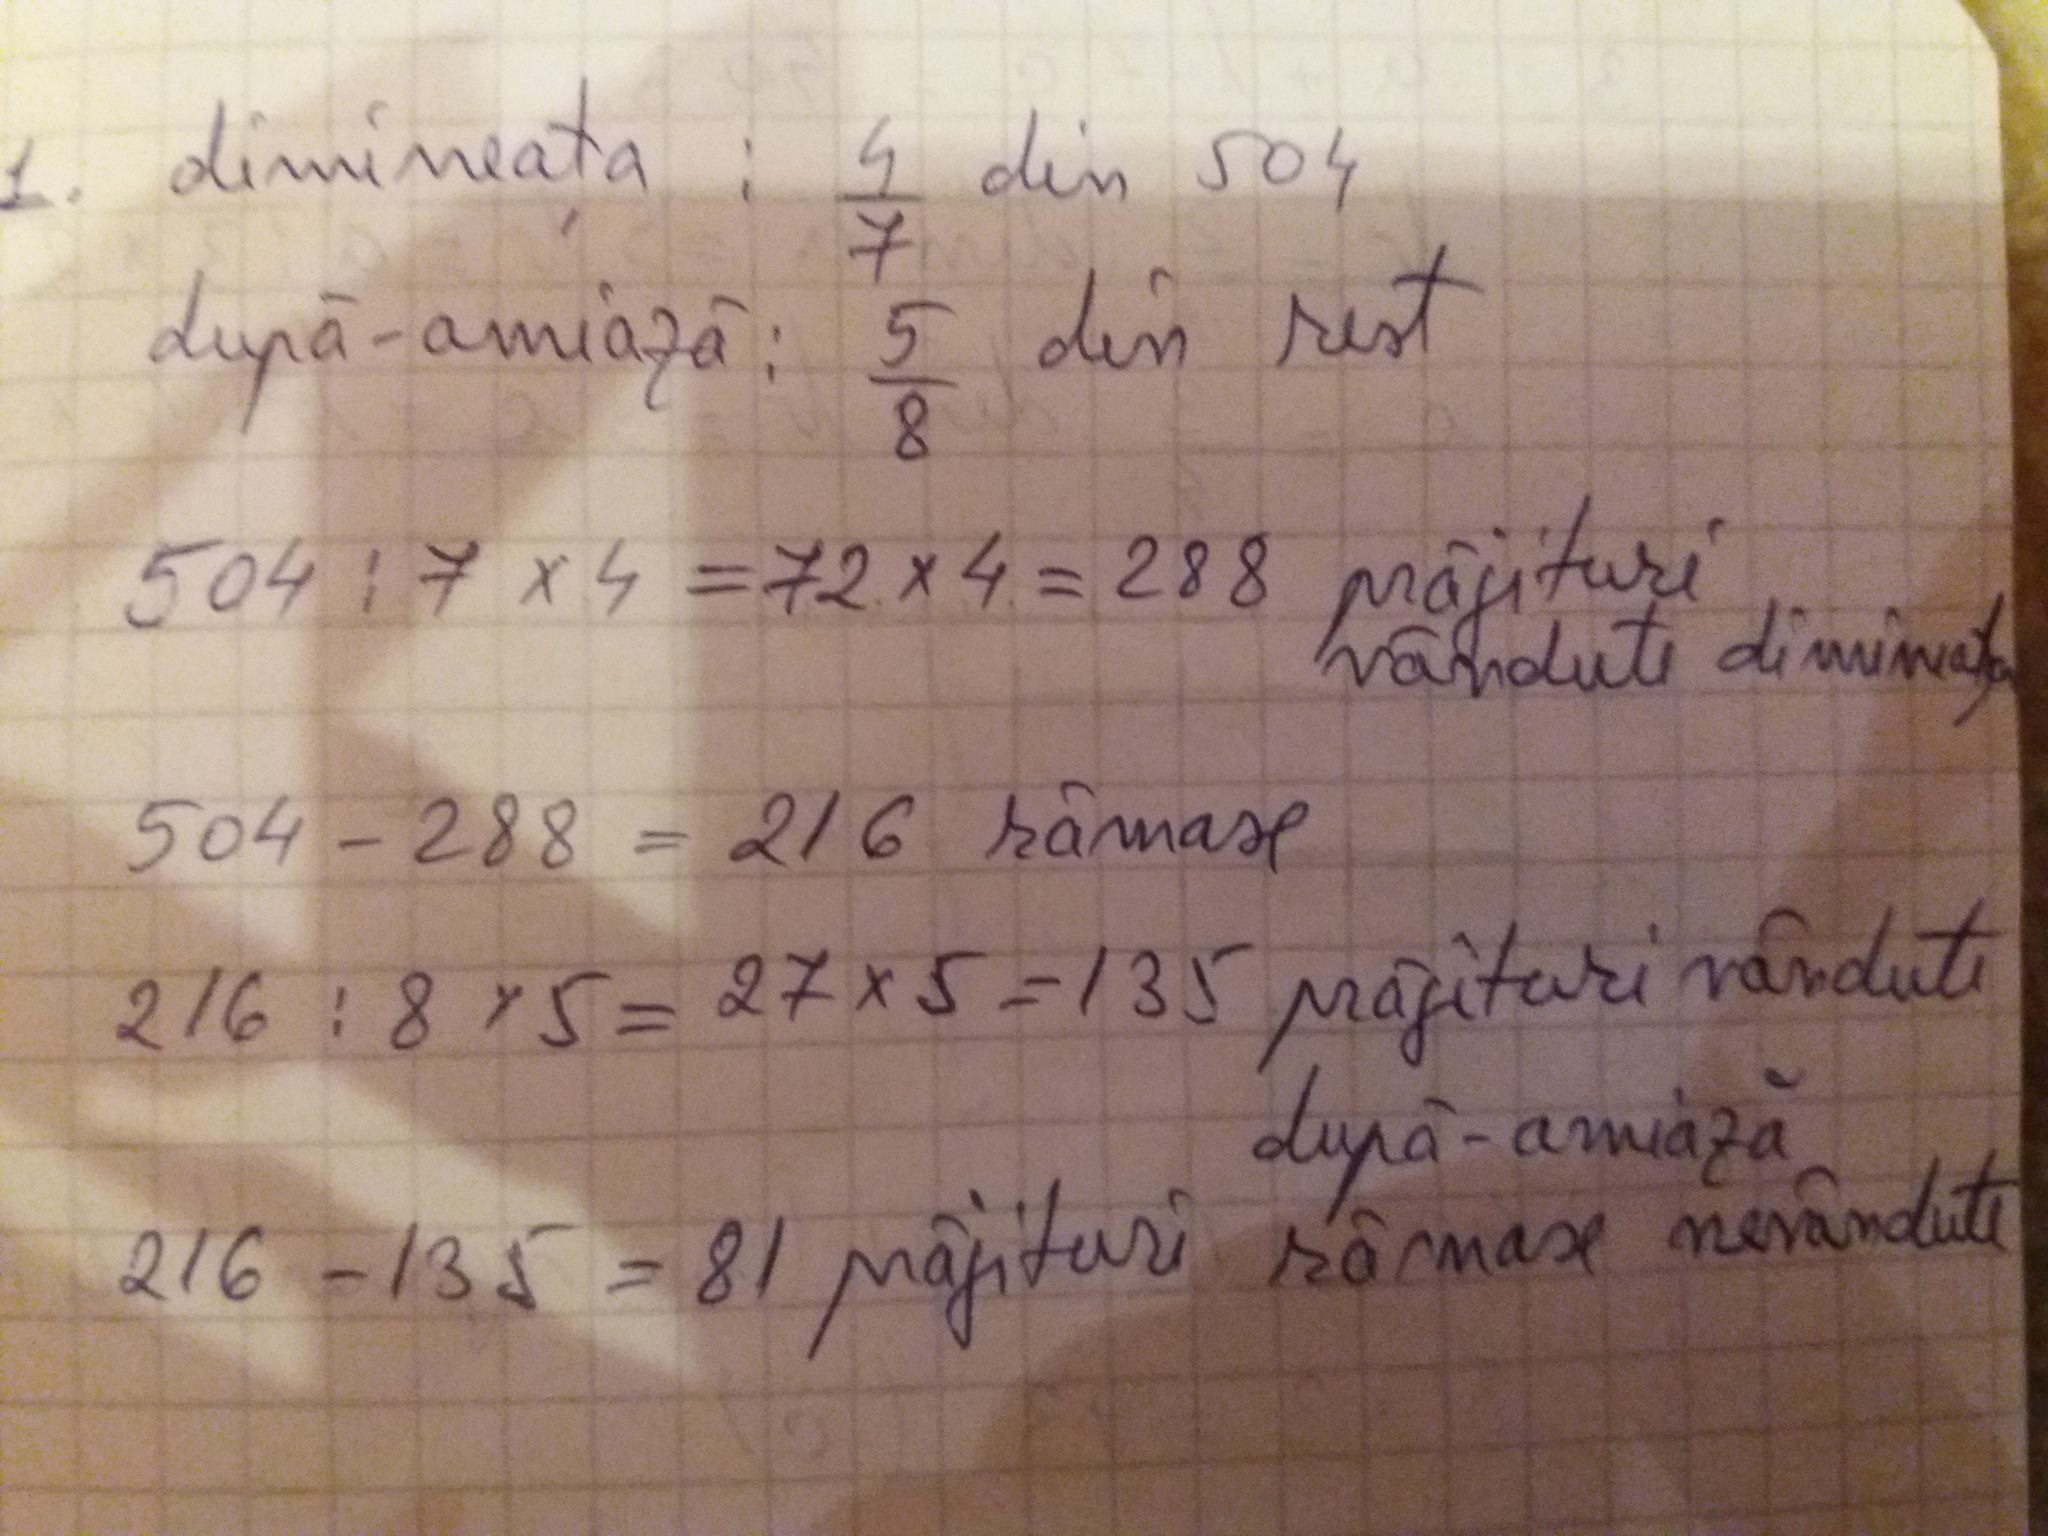 1. dimineața : 4/7 din 504
după-amiază : 5/8 din rest
504 : 7 × 4 = 72 × 4 = 288 prăjituri
vândute dimineața
504 - 288 = 216 rămase
216 : 8 × 5 = 27 × 5 = 135 prăjituri vândute
după-amiază
216 - 135 = 81 prăjituri rămase nevândute